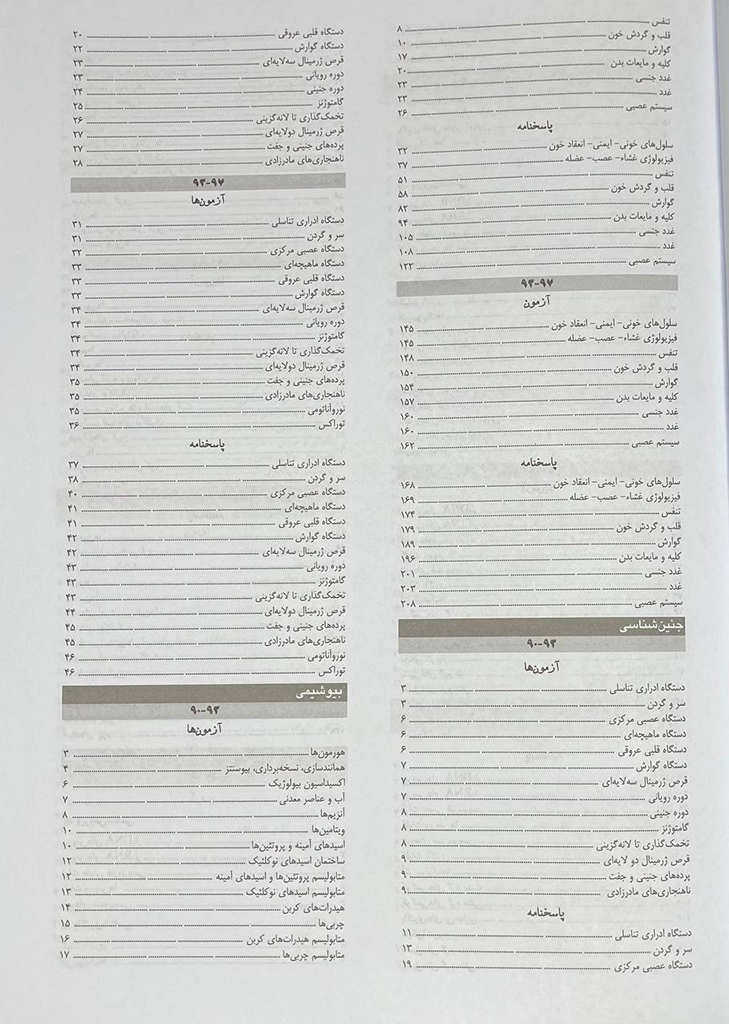 تنفس ۸
قلب و گردش خون ۱۰
گوارش ۱۷
کلیه و مایعات بدن ۲۰
غدد جنسی ۲۳
غدد ۲۳
سیستم عصبی ۲۶
پاسخنامه
سلول‌های خونی- ایمنی- انعقاد خون ۳۲
فیزیولوژی غشاء- عصب- عضله ۳۷
تنفس ۵۱
قلب و گردش خون ۵۸
گوارش ۸۲
کلیه و مایعات بدن ۹۴
غدد جنسی ۱۰۵
غدد ۱۰۸
سیستم عصبی ۱۲۲
۹۳-۹۷
آزمون
سلول‌های خونی- ایمنی- انعقاد خون ۱۴۵
فیزیولوژی غشاء- عصب- عضله ۱۴۵
تنفس ۱۴۸
قلب و گردش خون ۱۵۰
گوارش ۱۵۴
کلیه و مایعات بدن ۱۵۷
غدد جنسی ۱۶۰
غدد ۱۶۰
سیستم عصبی ۱۶۲
پاسخنامه
سلول‌های خونی- ایمنی- انعقاد خون ۱۶۸
فیزیولوژی غشاء- عصب- عضله ۱۶۹
تنفس ۱۷۴
قلب و گردش خون ۱۷۹
گوارش ۱۸۹
کلیه و مایعات بدن ۱۹۶
غدد جنسی ۲۰۱
غدد ۲۰۳
سیستم عصبی ۲۰۸
جنین شناسی
۹۰-۹۳
آزمون‌ها
دستگاه ادراری تناسلی ۳
سر و گردن ۳
دستگاه عصبی مرکزی ۶
دستگاه ماهیچه‌ای ۶
دستگاه قلبی عروقی ۶
دستگاه گوارش ۷
قرص ژرمینال سه‌لایه‌ای ۷
دوره رویانی ۷
دوره جنینی ۸
گامتوژنز ۸
تخمک‌گذاری تا لانه‌گزینی ۸
قرص ژرمینال دو لایه‌ای ۹
پرده‌های جنینی و جفت ۹
ناهنجاری‌های مادرزادی ۹
پاسخنامه
دستگاه ادراری تناسلی ۱۱
سر و گردن ۱۳
دستگاه عصبی مرکزی ۱۹
دستگاه قلبی عروقی ۲۰
دستگاه گوارش ۲۲
قرص ژرمینال سه‌لایه‌ای ۲۳
دوره رویانی ۲۳
دوره جنینی ۲۴
گامتوژنز ۲۵
تخمک‌گذاری تا لانه‌گزینی ۲۶
قرص ژرمینال دولایه‌ای ۲۷
پرده‌های جنینی و جفت ۲۷
ناهنجاری‌های مادرزادی ۲۸
۹۳-۹۷
آزمون‌ها
دستگاه ادراری تناسلی ۳۱
سر و گردن ۳۱
دستگاه عصبی مرکزی ۳۲
دستگاه ماهیچه‌ای ۳۳
دستگاه قلبی عروقی ۳۳
دستگاه گوارش ۳۳
قرص ژرمینال سه‌لایه‌ای ۳۴
دوره رویانی ۳۴
گامتوژنز ۳۴
تخمک‌گذاری تا لانه‌گزینی ۳۴
قرص ژرمینال دولایه‌ای ۳۴
پرده‌های جنینی و جفت ۳۵
ناهنجاری‌های مادرزادی ۳۵
نوروآناتومی ۳۵
توراکس ۳۶
پاسخنامه
دستگاه ادراری تناسلی ۳۷
سر و گردن ۳۸
دستگاه عصبی مرکزی ۴۰
دستگاه ماهیچه‌ای ۴۱
دستگاه قلبی عروقی ۴۱
دستگاه گوارش ۴۲
قرص ژرمینال سه‌لایه‌ای ۴۲
دوره رویانی ۴۳
گامتوژنز ۴۳
تخمک‌گذاری تا لانه‌گزینی ۴۳
قرص ژرمینال دولایه‌ای ۴۴
پرده‌های جنینی و جفت ۴۵
ناهنجاری‌های مادرزادی ۴۵
نوروآناتومی ۴۶
توراکس ۴۶
بیوشیمی
۹۰-۹۳
آزمون‌ها
هورمون‌ها ۳
همانندسازی، نسخه‌برداری، بیوسنتز ۴
اکسیداسیون بیولوژیک ۶
آب و عناصر معدنی ۷
آنزیم‌ها ۸
ویتامین‌ها ۱۰
اسیدهای آمینه و پروتئین‌ها ۱۰
ساختمان اسیدهای نوکلئیک ۱۲
متابولیسم پروتئین‌ها و اسیدهای آمینه ۱۲
متابولیسم اسیدهای نوکلئیک ۱۳
هیدرات‌های کربن ۱۴
چربی‌ها ۱۵
متابولیسم هیدرات‌های کربن ۱۶
متابولیسم چربی‌ها ۱۷